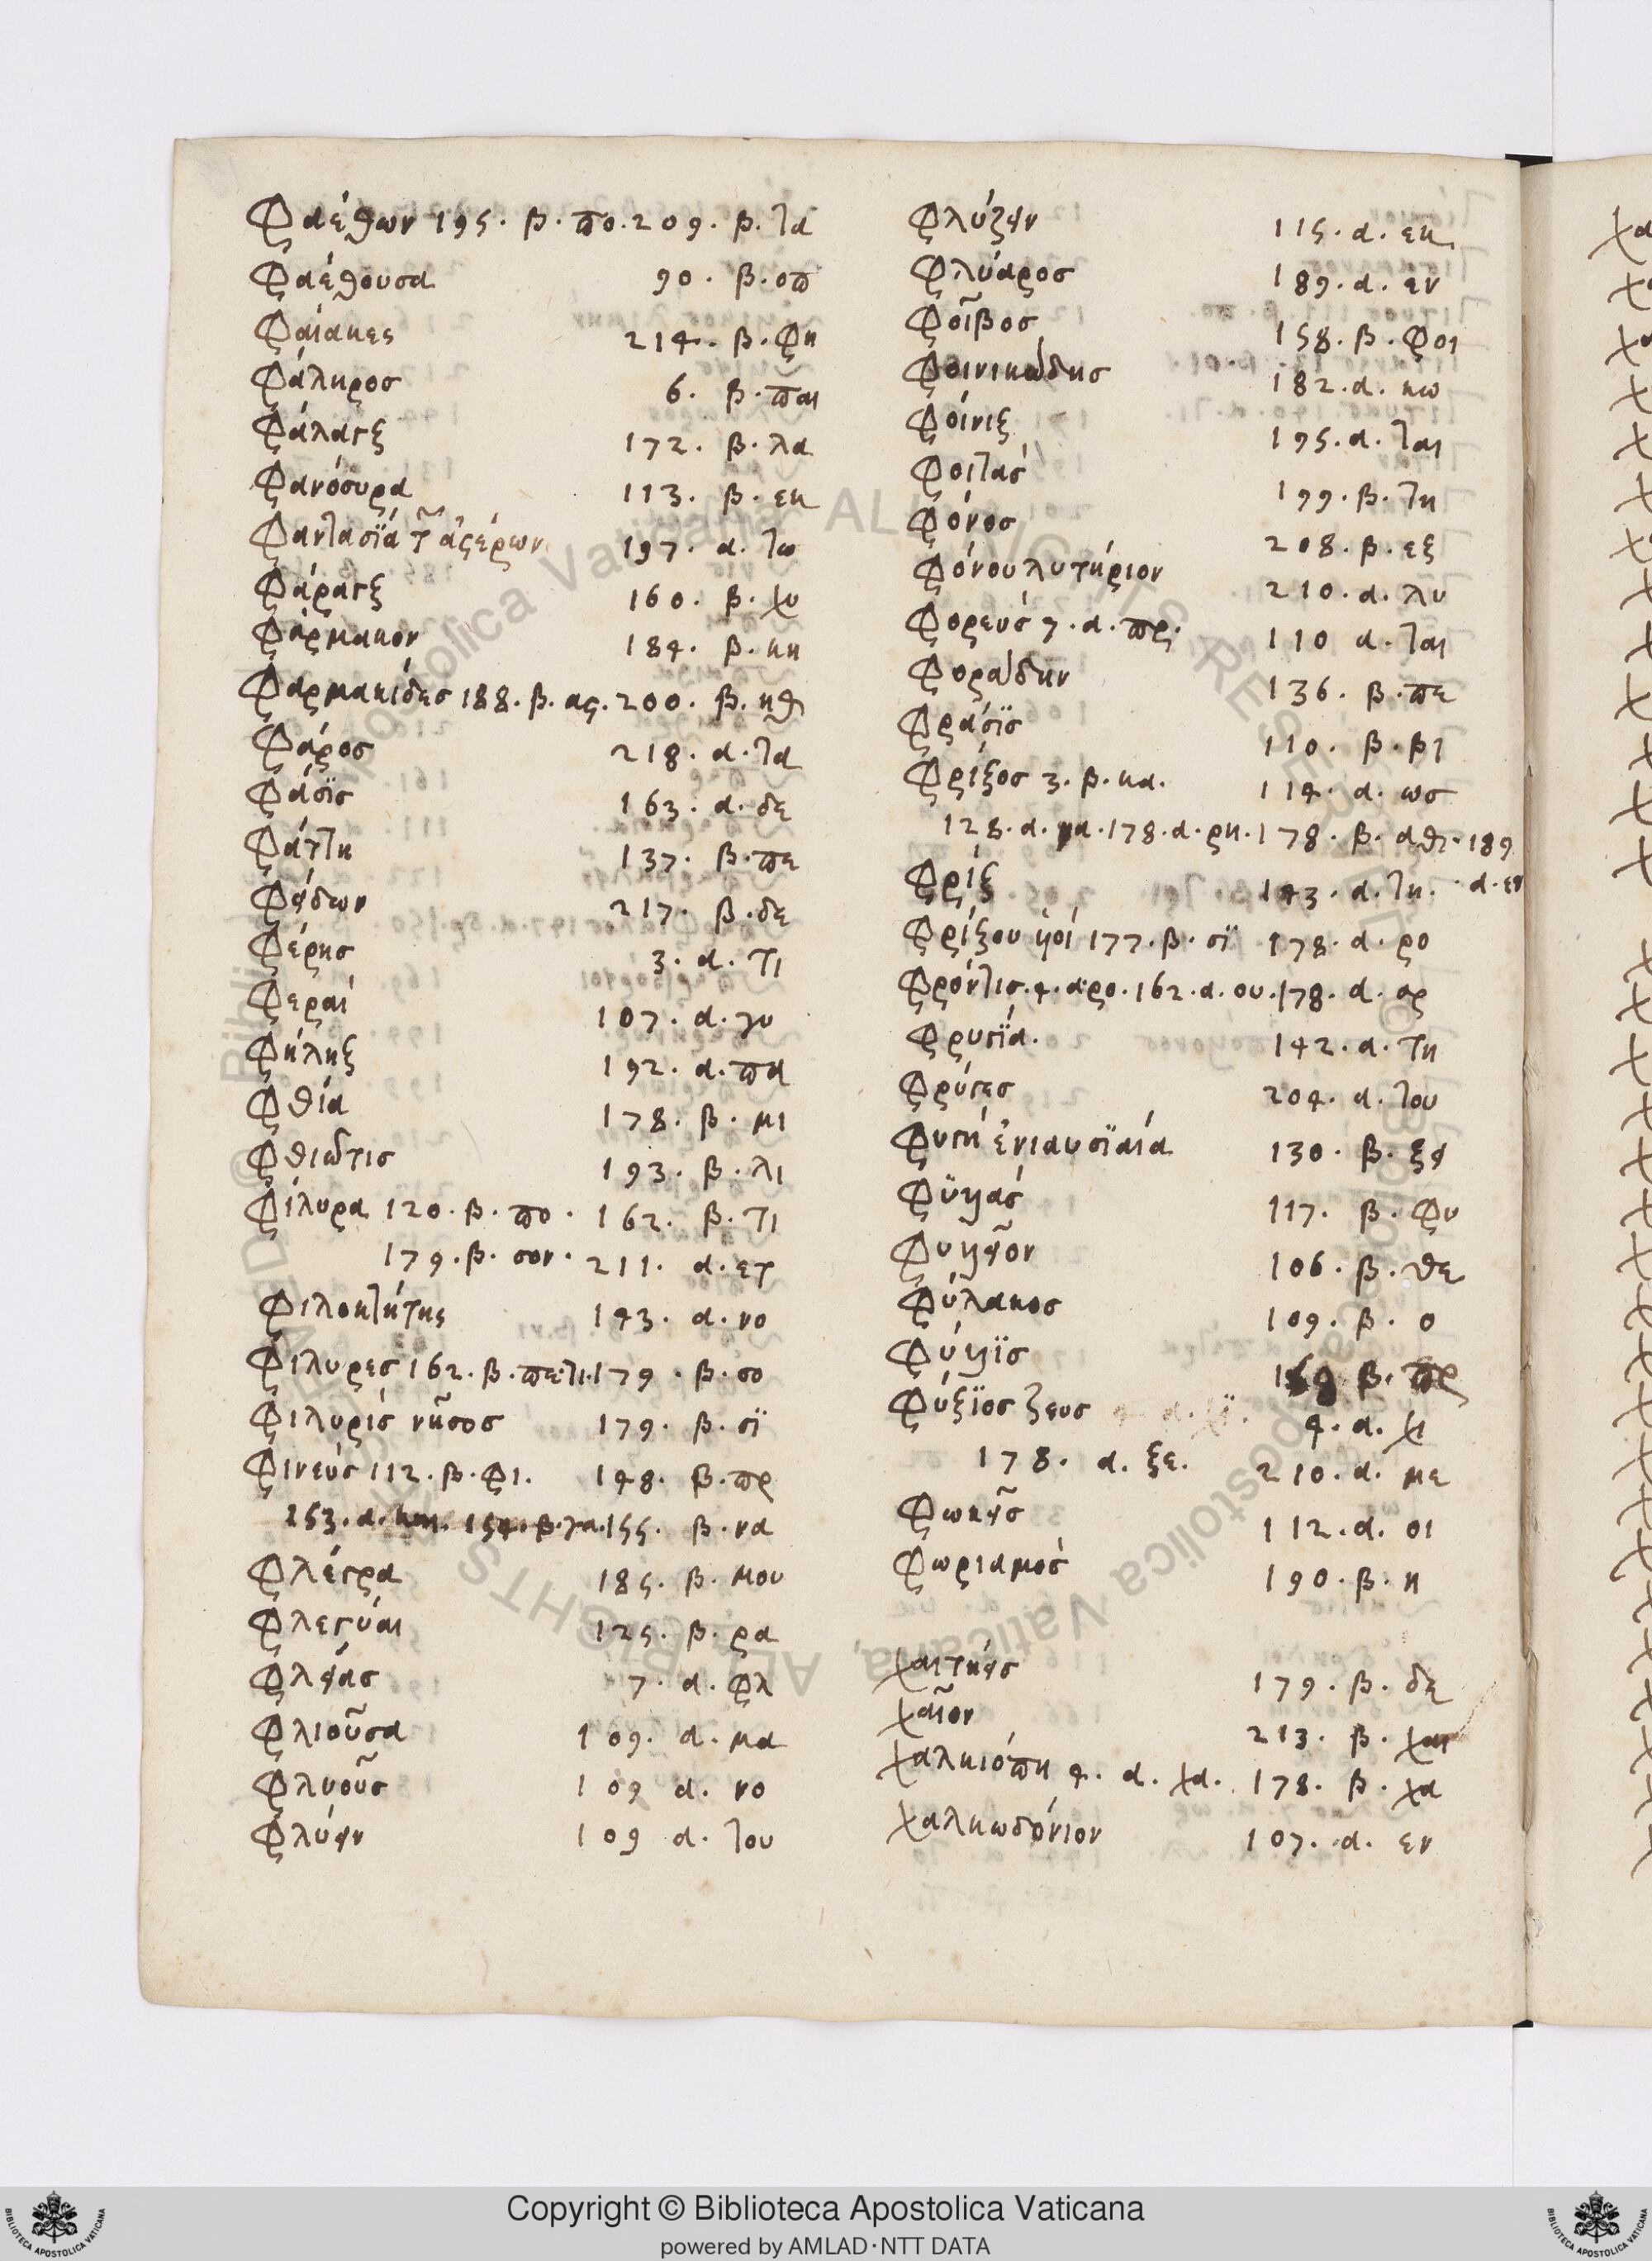 Φαέθων 195. β. πο. 209. β. τα
Φαέθουσα 90. β. οπ
Φαίακες 214. β. φη
Φάληρος 6. β. παι
Φάλαγξ 172. β. λα
Φανόσυρα 113. β. εκ
Φαντασία τ͂ ἀςέρων 197. α. τω
Φάραγξ 160. β. χυ
Φάρμακον 184. β. κη
Φαρμακίδες 188. β. ας. 200. β. κθ
Φάρος 218. α. τα
Φάσϊς 163. α. δε
Φάττη 137. β. πε
Φείδων 217. β. δε
Φέρης 3. α. τι
Φεραί 107. α. γυ
Φήληξ 192. α. πα
Φθία 178. β. μι
Φθιῶτις 193. β. λι
Φίλυρα 120. β. πο. 162. β. τι
179. β. σον. 211. α. ετ
Φιλοκτήτης 143. α. νο
Φίλυρες 162. β. πε. τι. 179. β. σο
Φιλυρίς νῆσος 179. β. σϊ
Φινεύς 112. β. φι. 148. β. πρ
153. α. 154. β. γα. 155. β. να
Φλέγρα 185. β. μου
Φλεγύαι 125. β. ρα
Φλείας 7. α. φλ
Φλιοῦσα 109. α. μα
Φλνοῦς 109 α. νο
Φλύειν 109 α. του
Φλύζειν 115. α. εκ
Φλύαρος 189. α. εν
Φοῖβος 158. β. φοι
Φοινικώδης 182. α. κω
Φοίνιξ 195. α. ται
Φοιτάς 199. β. τη
Φόνος 208. β. εξ
Φόνου λυτήριον 210. α. λυ
Φορεύς 7. α. πρ. 110 α. ται
Φοράδην 136. β. πε
Φράσϊς 110. β. βι
Φρίξος 3. β. κα. 114. α. ως
128. α. κα. 178. α. ρη. 178. β. αθ. 189
Φρίξ 143. α. τη. α. εν
Φρίξου ὑοί 177. β. σϊ 178. α. ρο
Φρόντις. 4. α. ρο. 162. α. ου. 178. α. αρ
Φρυγία. 142. α. τη
Φρύγες 204. α. του
Φυγή ἐνιαυσϊαία 130. β. ξε
117. β. φυ
106. β. θε
Φύλακος 109. β. ο
169 β. πρ
Φύξϊος ζευς 4. α. χι
178. α. ξε. 210. α. με
Φωκεῖς 112. α. οι
Φωριαμός 190. β. η
Χαιτήεις 179. β. δε
Χαῖον 213. β. χαι
Χαλκιόπη 4. α. χα. 178. β. χα
Χαλκωδόνιον 107. α. εν